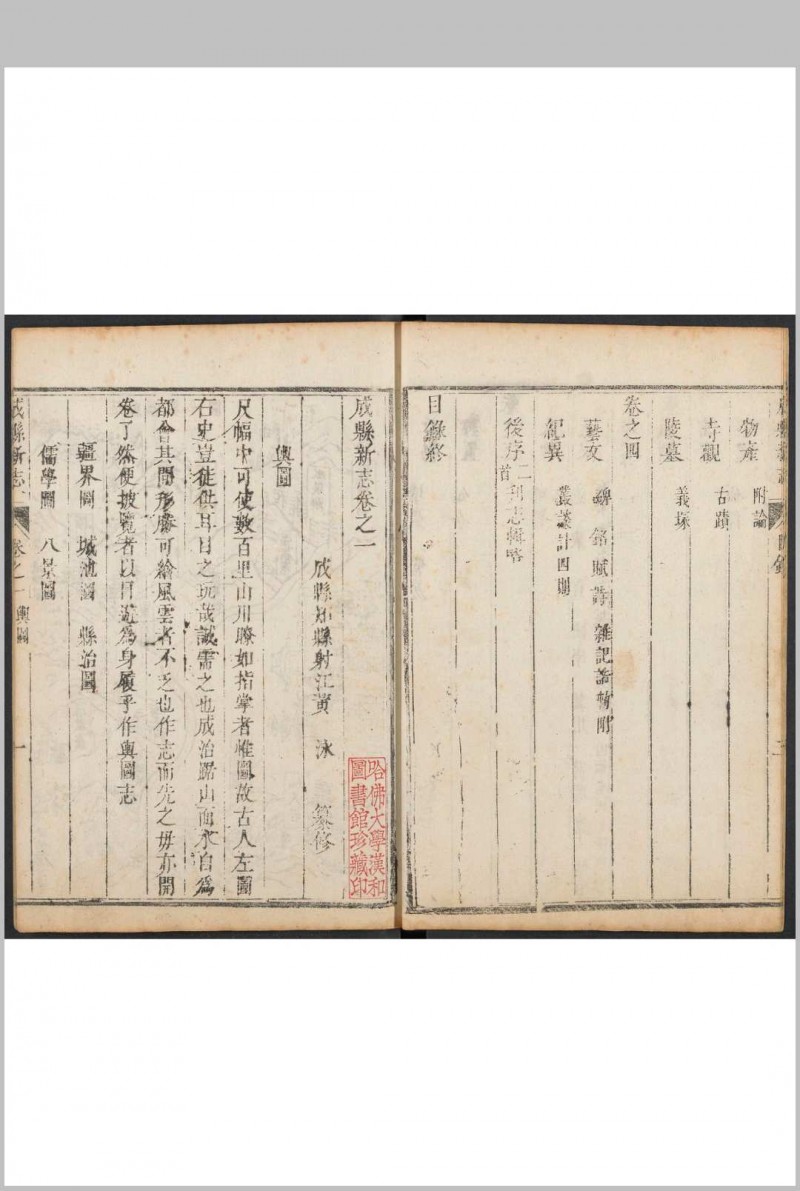 物產 附論
寺觀 古蹟
陵墓 義塚
卷之四
藝文 碑 銘 賦 詩 雜記
紀異 叢談計四則
後序二首 刊志輯略
目錄終
成縣新志卷之一
成縣知縣射江黃 泳 纂修
輿圖
尺幅中可使數百里山川瞭如指掌者惟圖故古人左圖
右史豈徒供耳目之玩哉誠需之也成治踞山面水自為
都會其間形勝可繪風雲者不乏也作志而先之毋亦開
卷了然便披覽者以目遊為身履乎作輿圖志
疆界圖 城池圖 縣治圖
儒學圖 八景圖
成縣新志 卷之一 輿圖 一
哈佛大學漢和圖書館珍藏印